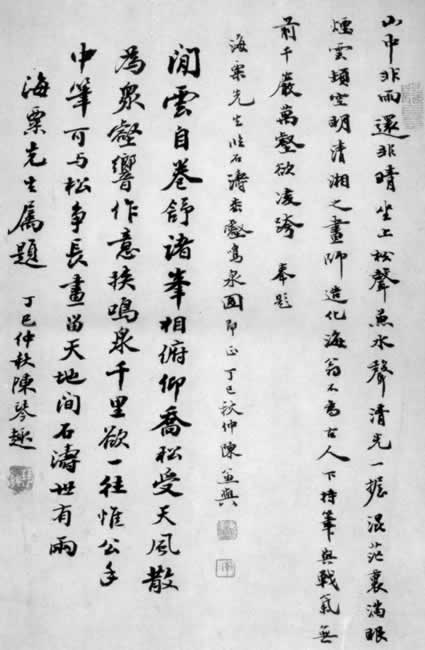 山中非雨還非晴坐上松聲兼水聲清光一握混茫裏滿眼
煙雲頃空明清湘之畫師造化海翁不為古人下持筆與戰氣無
前千巖萬壑欲凌跨 奉題
海粟先生臨石濤萬壑鳴泉圖即正丁巳秋仲陳兼與
閒雲自卷舒諸峯相俯仰喬松受天風散
為眾壑響作意挾鳴泉千里欲一往惟公手
中筆可与松争長畫留天地間石濤世有兩
海粟先生屬題 丁巳仲秋陳琴趣